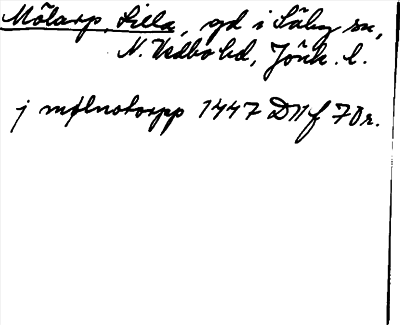 Mölarp, Lilla, gd i Säby sn,
N. Vedbo hd, Jönk. l.
j mølnotorpp 1447 D11f 70r.